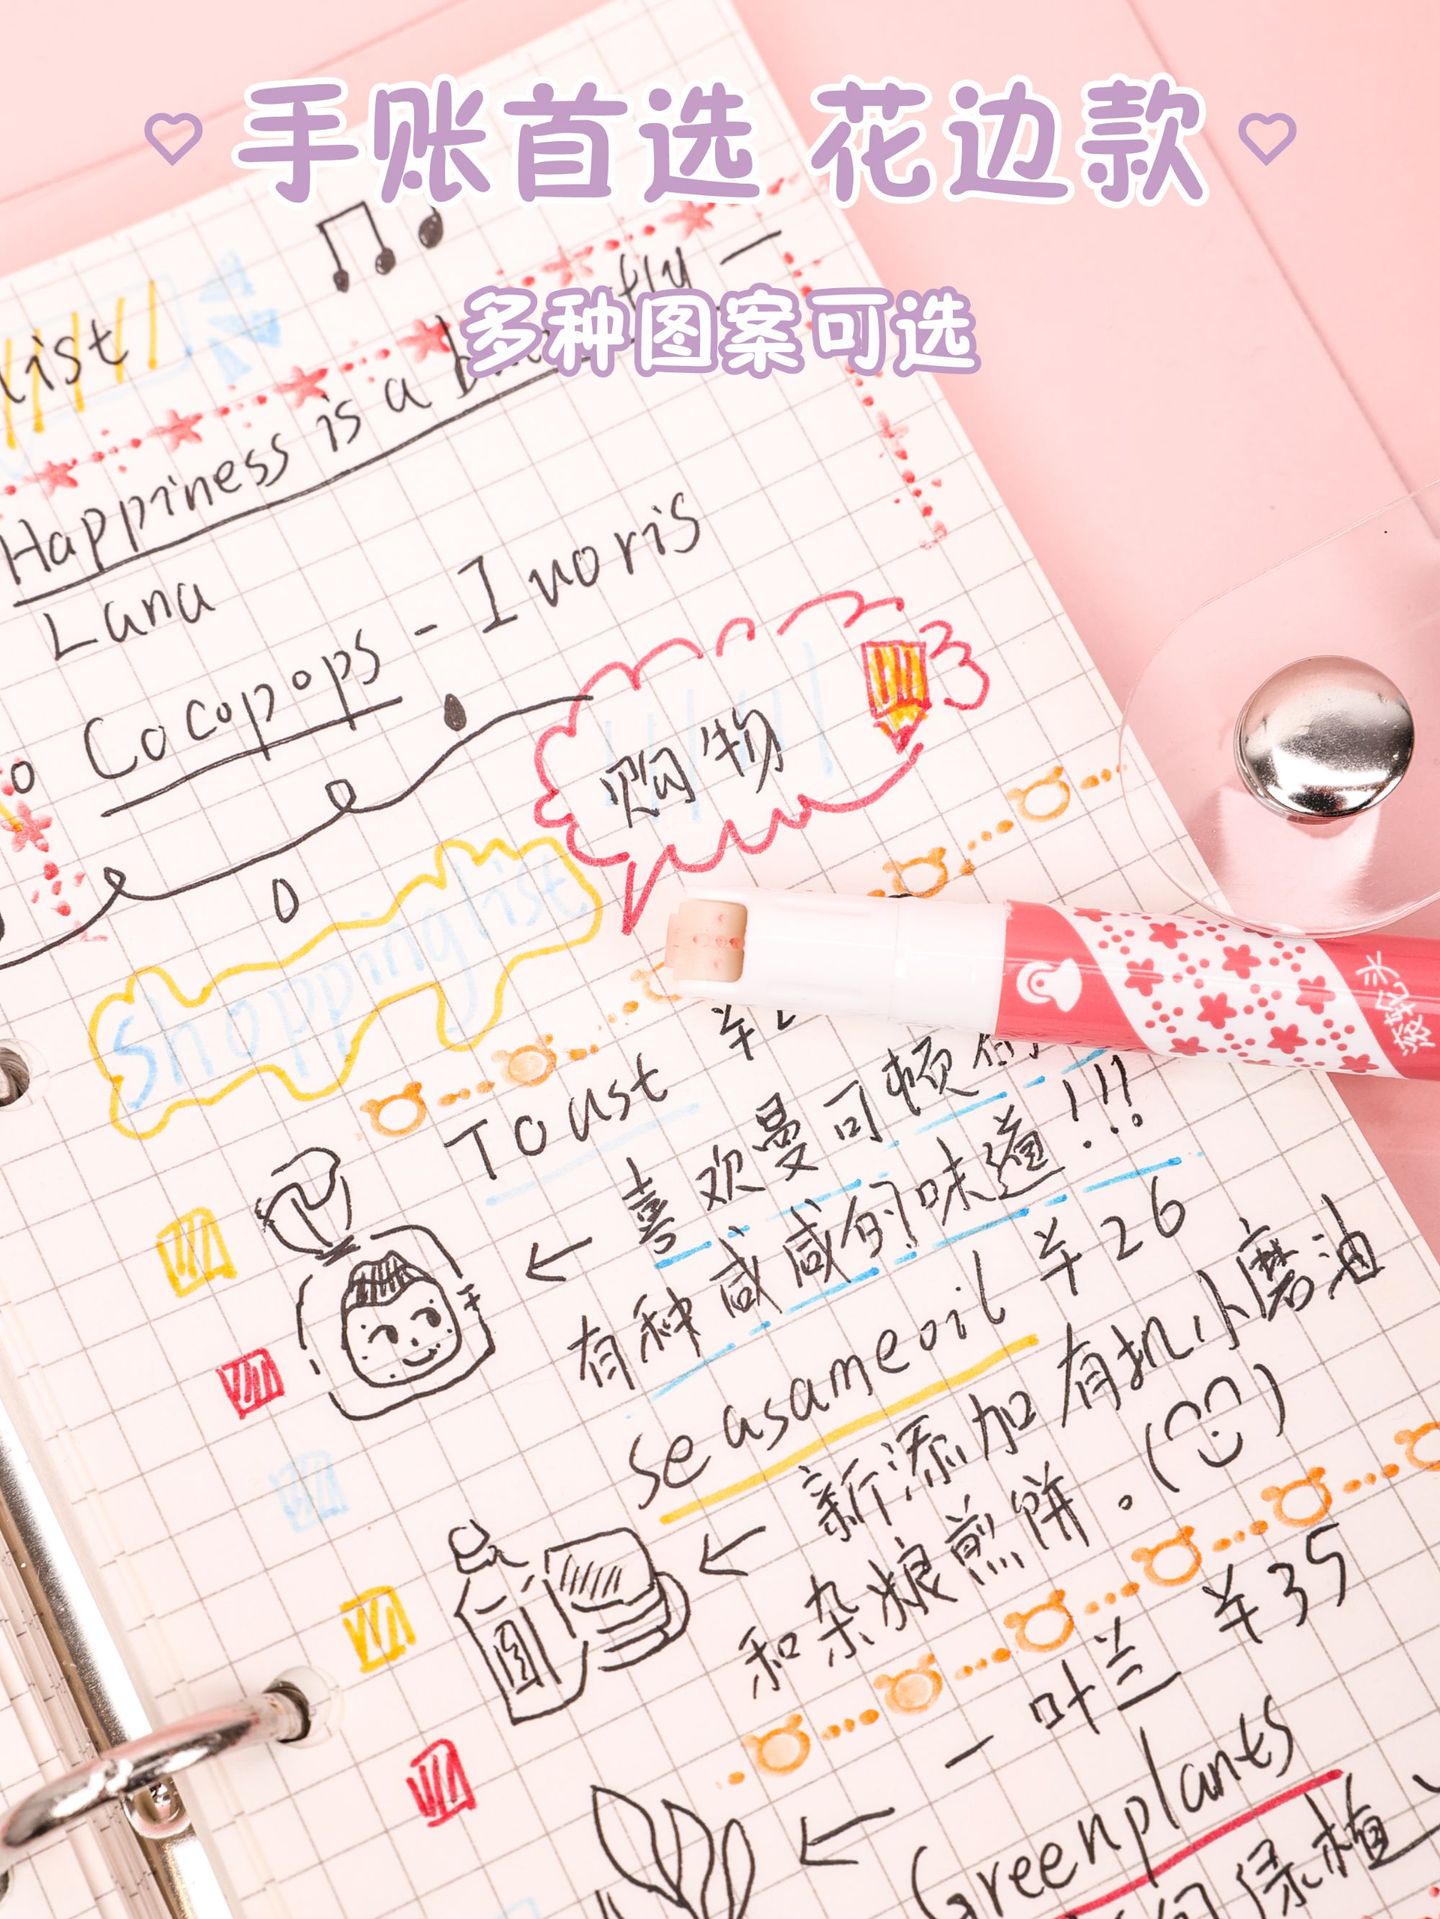 手账首选 花边款
多种图案可选
list
Happiness is a
fly -
Lana
Cocopops - Ivoris
购物
shoppinglist
滚轮头
Toast
喜欢曼可顿
有种咸咸的味道!!!
seasameoil ¥26
新添加有机小磨油
和杂粮煎饼。
一叶兰 ¥35
Greenplants
绿植